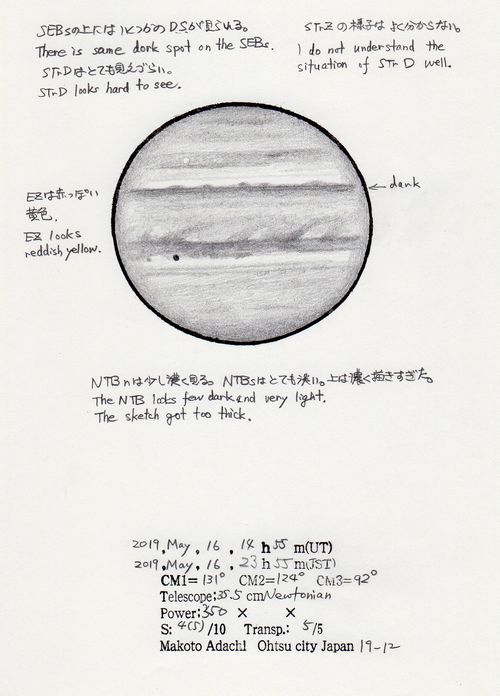 SEBsの上にはいくつかのDSが見られる。
There is same dark spot on the SEBs.
STrDはとても見えづらい。
STrD looks hard to see.
STrZの様子はよく分からない。
I do not understand the
situation of STrD well.
← dark
EZは赤っぽい
黄色。
EZ looks
reddish yellow.
NTBnは少し濃く見る。NTBsはとても淡い。上は濃く描きすぎた。
The NTB looks few dark and very light.
The sketch got too thick.
2019, May, 16, 14 h 55 m(UT)
2019, May, 16, 23 h 55 m(JST)
CM1= 131° CM2= 124° CM3= 92°
Telescope: 35.5 cm Newtonian
Power: 350 × ×
S: 4(5) /10 Transp.: 5/5
Makoto Adachi Ohtsu city Japan 19-12